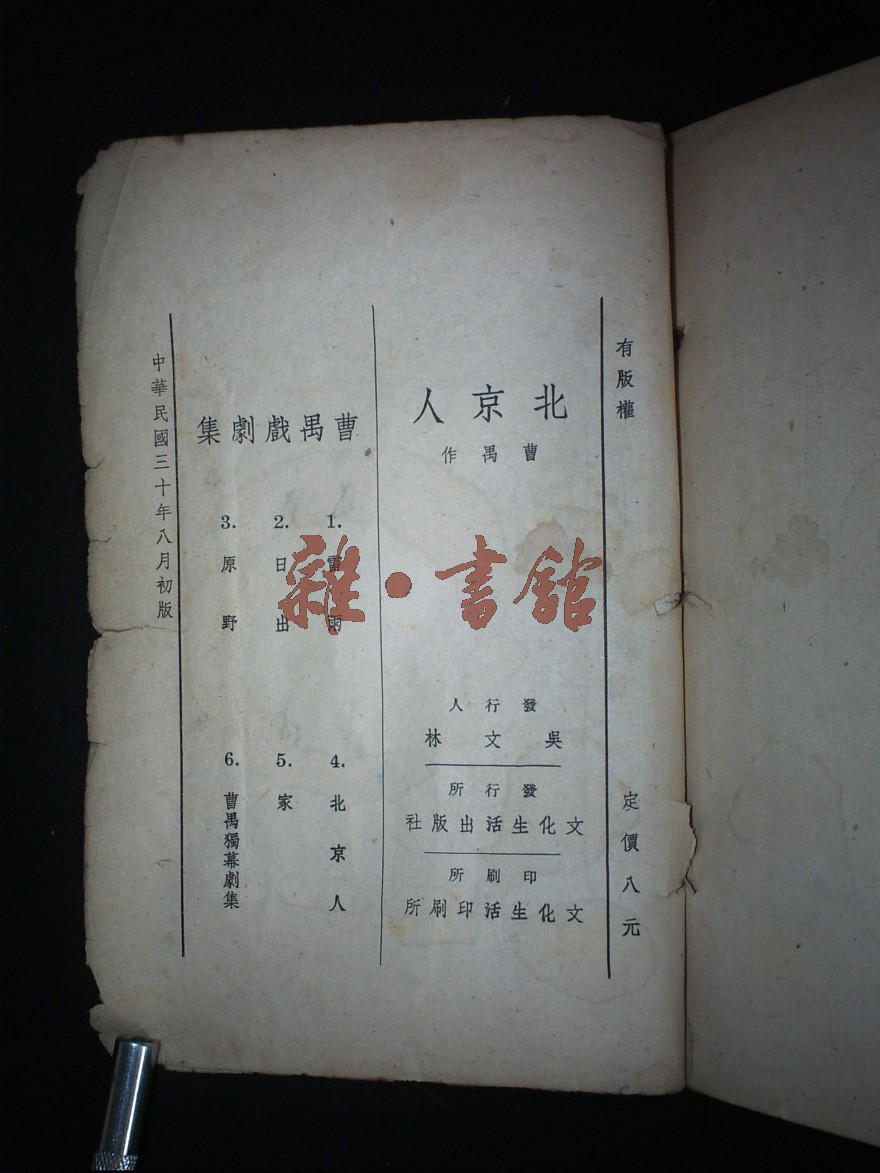 有版權
定價八元
北京人
曹禺作
發行人
吳文林
發行所
文化生活出版社
印刷所
文化生活印刷所
曹禺戲劇集
1. 雷雨
2. 日出
3. 原野
4. 北京人
5. 家
6. 曹禺獨幕劇集
中華民國三十年八月初版
雜·書館